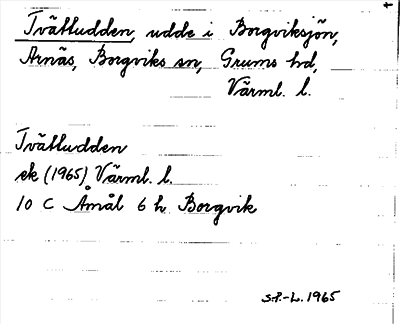 Tvättudden, udde i Borgviksjön,
Arnäs, Borgviks sn, Grums hd,
Värml. l.
Tvättudden
ek (1965) Värml. l.
10 C Åmål 6 h Borgvik
S.P.-L. 1965